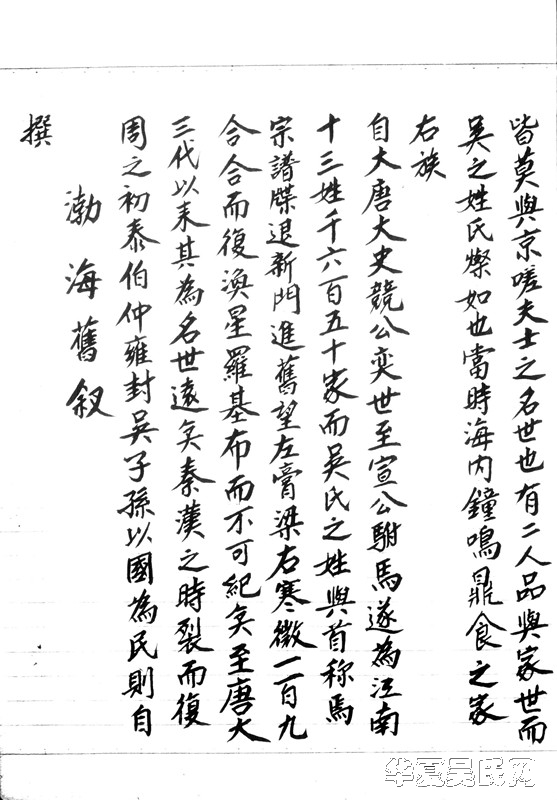 皆莫與京嗟夫士之名世也有二人品與家世而
吴之姓氏燦如也當時海内鐘鳴鼎食之家
右族
自大唐大史競公奕世至宣公駙馬遂為江南
十三姓千六百五十家而吴氏之姓與首称焉
宗譜牒退新門進舊望左膏梁右寒微二百九
合合而復渙星羅基布而不可紀矣至唐大
三代以来其為名世遠矣秦漢之時裂而復
周之初泰伯仲雍封吴子孫以國為氏則自
渤海舊叙
撰
华夏吴氏网